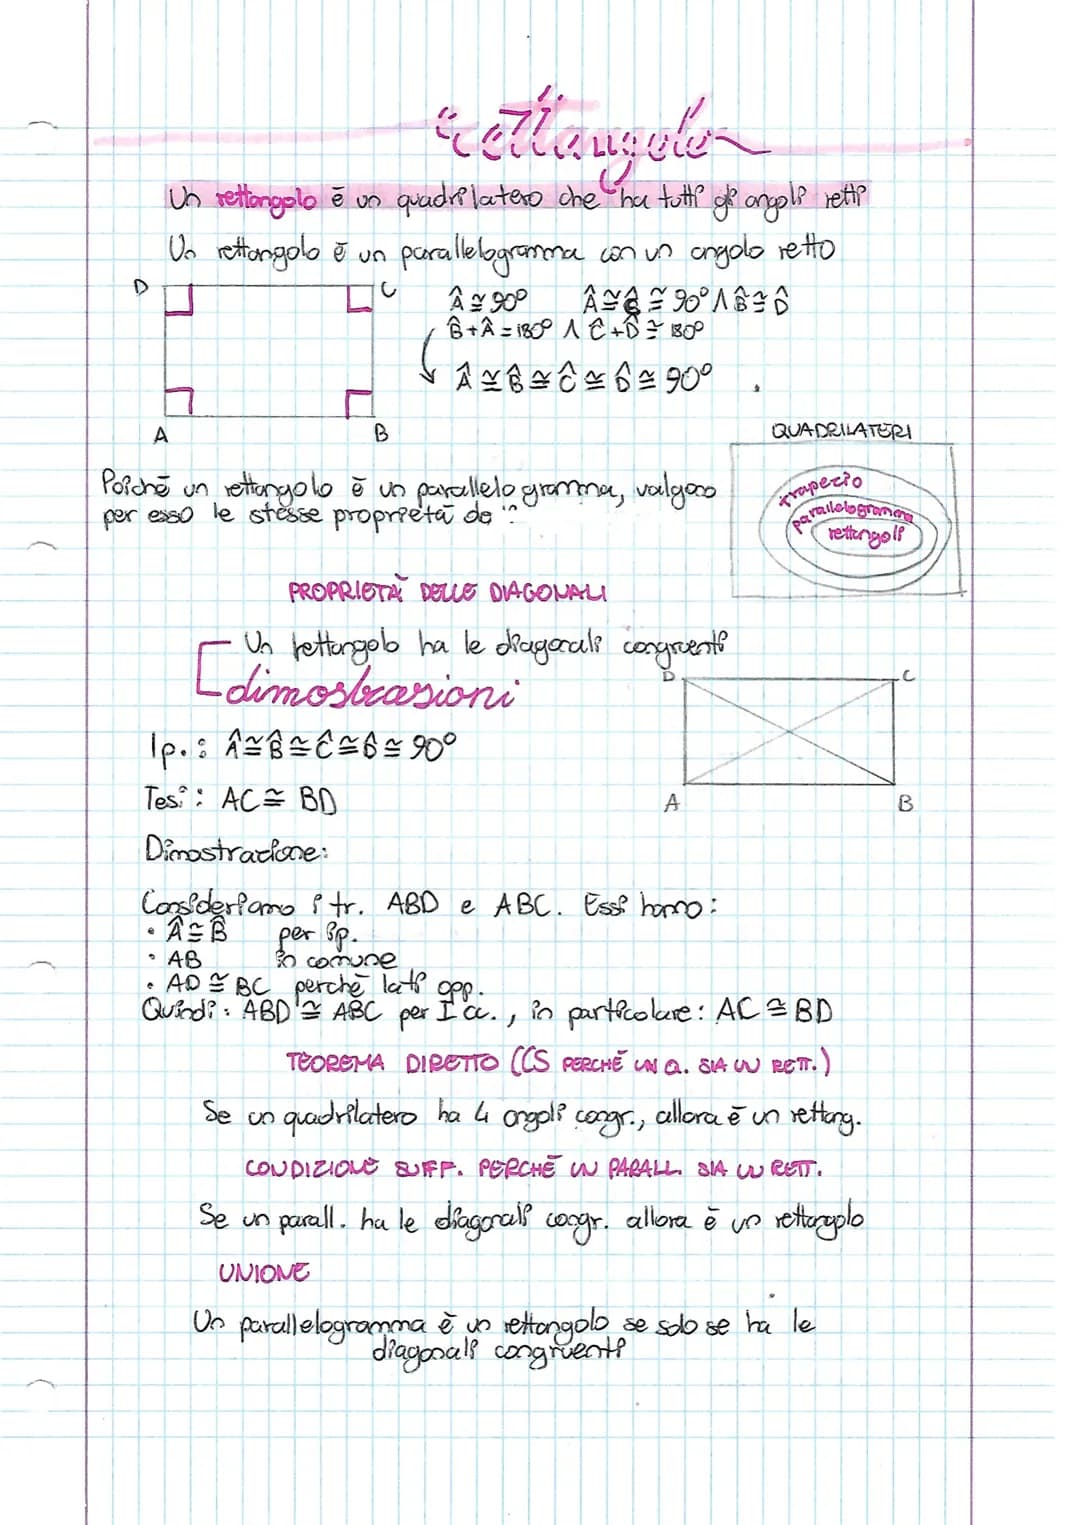 rettangolo
Un rettangolo è un quadrilatero che ha tutti gli angoli retti
Un rettangolo è un parallelogramma con un angolo retto
D
C
A
B
Â ≅ 90°
Â ≅ Ĉ ≅ 90° ∧ B̂ ≅ D̂
B̂ + Â = 180° ∧ Ĉ + D̂ ≅ 180°
Â ≅ B̂ ≅ Ĉ ≅ D̂ ≅ 90°
QUADRILATERI
trapezio
parallelogramma
rettangoli
Poiché un rettangolo è un parallelogramma, valgono
per esso le stesse proprietà
PROPRIETÀ DELLE DIAGONALI
Un rettangolo ha le diagonali congruenti
dimostrazioni
D
C
A
B
Ip.: Â ≅ B̂ ≅ Ĉ ≅ D̂ ≅ 90°
Tesi: AC ≅ BD
Dimostrazione:
Consideriamo i tr. ABD e ABC. Essi hanno:
• Â ≅ B̂ per ip.
• AB in comune
• AD ≅ BC perché lati opp.
Quindi: ABD ≅ ABC per I cc., in particolare: AC ≅ BD
TEOREMA DIRETTO (CS PERCHÉ UN Q. SIA UN RETT.)
Se un quadrilatero ha 4 angoli congr., allora è un rettang.
CONDIZIONE SUFF. PERCHÉ UN PARALL. SIA UN RETT.
Se un parall. ha le diagonali congr. allora è un rettangolo
UNIONE
Un parallelogramma è un rettangolo se solo se ha le
diagonali congruenti